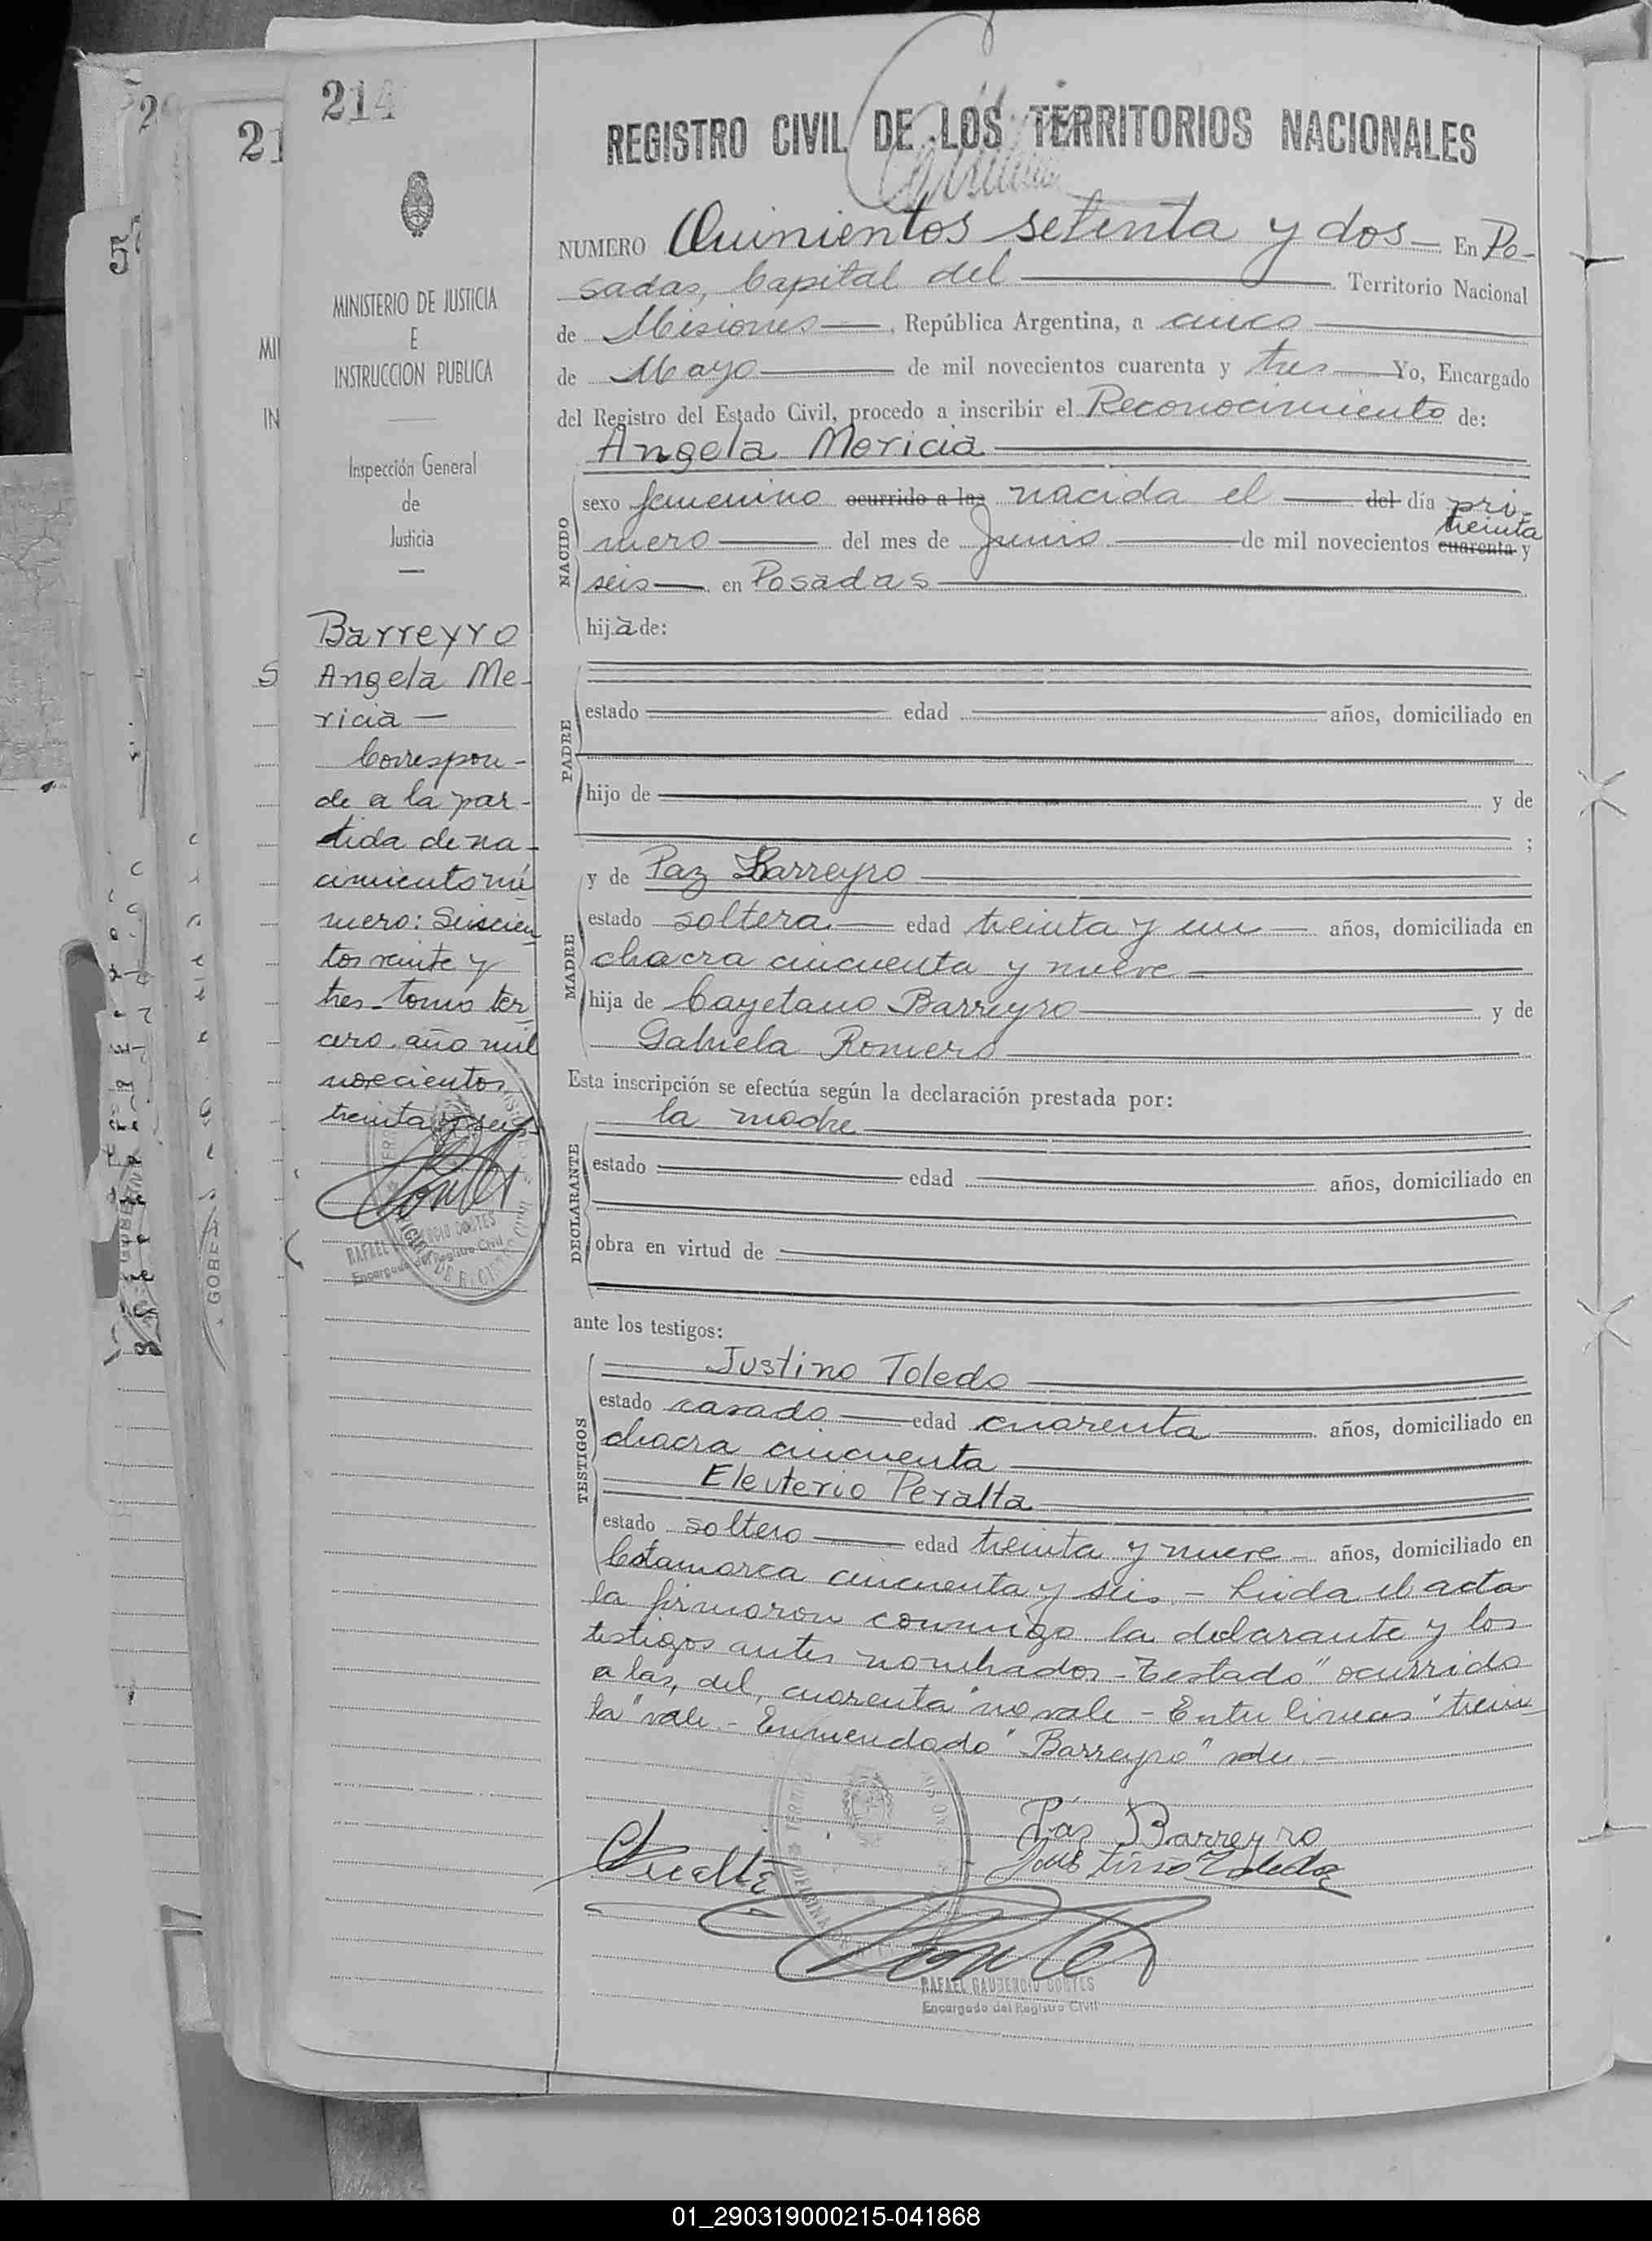 214
REGISTRO CIVIL DE LOS TERRITORIOS NACIONALES
MINISTERIO DE JUSTICIA
E
INSTRUCCION PUBLICA
Inspección General
de
Justicia
Barreyro
Angela Me-
ricia —
Correspon-
de a la par-
tida de na-
cimiento nú
mero: Seiscien
tos veinte y
tres tomo ter
cero. año mil
novecientos
treinta y seis
RAFAEL GAUDENCIO CORTES
Encargado del Registro Civil
NUMERO Quinientos setenta y dos — En Po-
sadas, Capital del — Territorio Nacional
de Misiones — , República Argentina, a cinco
de Mayo — de mil novecientos cuarenta y tres — Yo, Encargado
del Registro del Estado Civil, procedo a inscribir el Reconocimiento de:
Angela Mericia
NACIDO
sexo femenino ocurrido a las nacida el — del día pri-
treinta
mero — del mes de Junio — de mil novecientos cuarenta y
seis — en Posadas
hija de:
PADRE
estado — edad — años, domiciliado en
hijo de — y de
;
MADRE
y de Paz Barreyro
estado soltera — edad treinta y un — años, domiciliada en
chacra cincuenta y nueve
hija de Cayetano Barreyro — y de
Gabriela Romero
Esta inscripción se efectúa según la declaración prestada por:
DECLARANTE
la madre
estado — edad — años, domiciliado en
obra en virtud de
ante los testigos:
TESTIGOS
Justino Toledo
estado casado — edad cuarenta — años, domiciliado en
chacra cincuenta
Eleuterio Peralta
estado soltero — edad treinta y nueve — años, domiciliado en
Catamarca cincuenta y seis. — Leida el acta
la firmaron conmigo la declarante y los
testigos antes nombrados - Testado "ocurrido
a las, del, cuarenta" no vale - Entre lineas "trein
ta" vale. - Enmendado "Barreyro" vale. -
Páz Barreyro
Justino Toledo
Peralta
RAFAEL GAUDENCIO CORTES
Encargado del Registro Civil
01_290319000215-041868